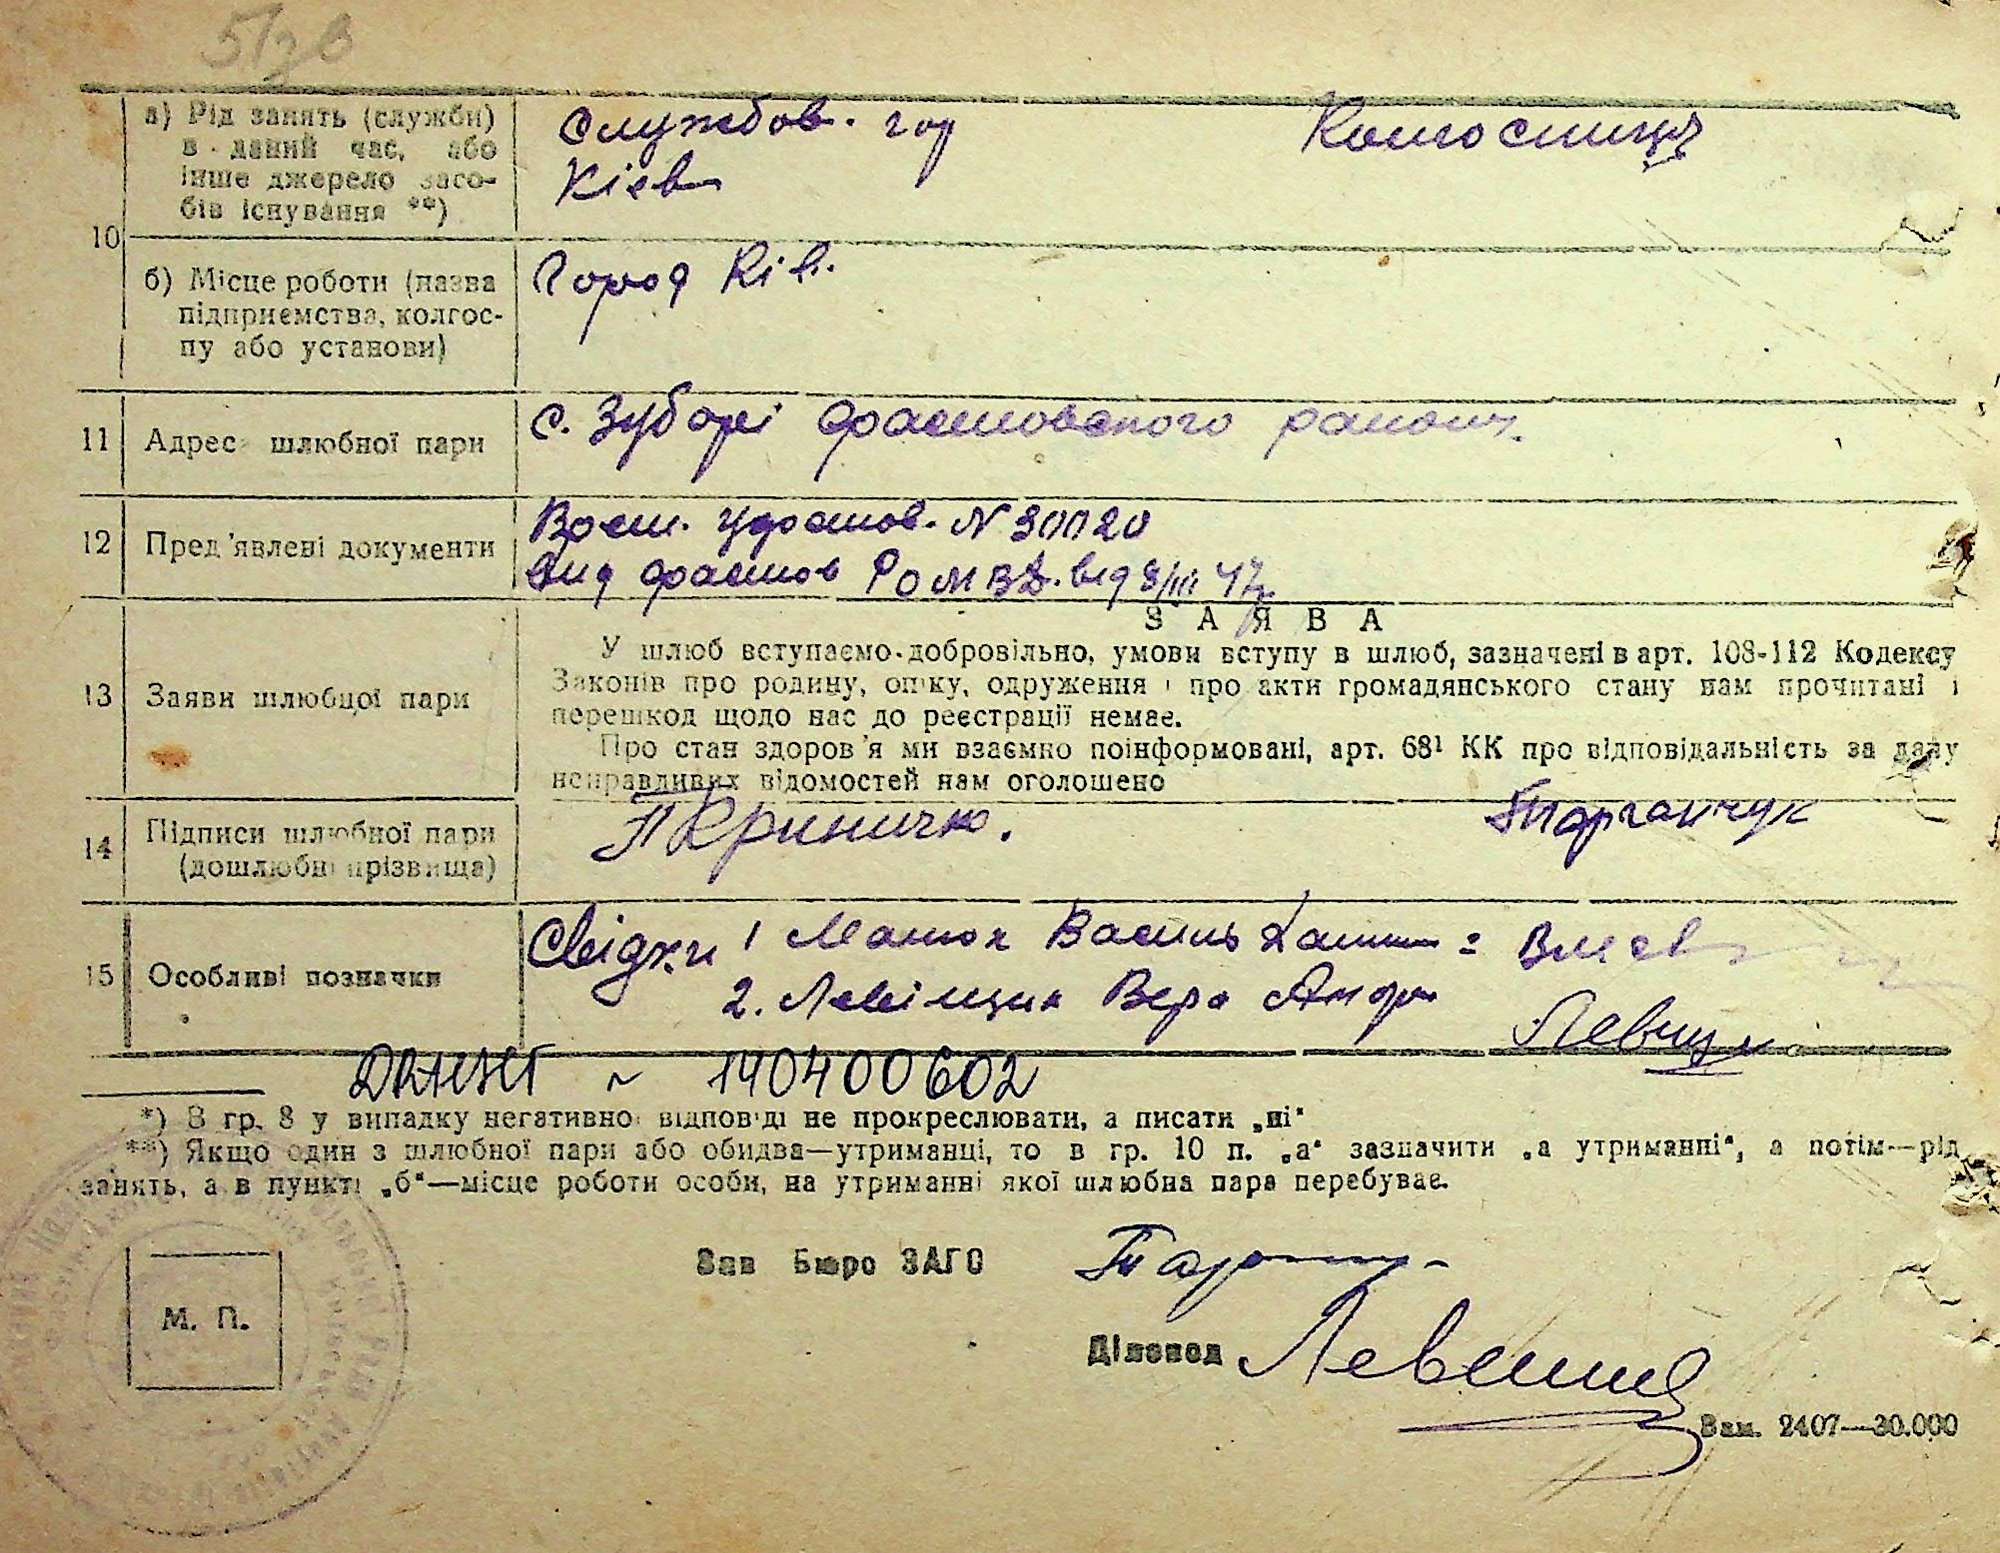 а) Рід занять (служби)
в даний час, або
інше джерело засо-
бів існування **)
Службов. гор
Кіев
Колгоспниця
10
б) Місце роботи (назва
підприємства, колгос-
пу або установи)
Город Ків.
11 Адреса шлюбної пари
с. Зубарі Фастовского району.
12 Пред'явлені документи
Воен. Удостов. N 30020
Вид Фастов РОМВД. від 8/III 47
ЗАЯВА
13 Заяви шлюбної пари
У шлюб вступаємо добровільно, умови вступу в шлюб, зазначені в арт. 108-112 Кодексу
Законів про родину, опіку, одруження і про акти громадянського стану нам прочитані і
перешкод щодо нас до реєстрації немає.
Про стан здоров'я ми взаємно поінформовані, арт. 68¹ КК про відповідальність за дачу
неправдивих відомостей нам оголошено
14 Підписи шлюбної пари
(дошлюбні прізвища)
П Криничко.
Тарганчук
15 Особливі позначки
Свідки 1 Манюк Василь
2. Вера Андр
Левиц
140400602
*) В гр. 8 у випадку негативної відповіді не прокреслювати, а писати „ні“
**) Якщо один з шлюбної пари або обидва—утриманці, то в гр. 10 п. „а“ зазначити „а утриманні“, а потім—рід
занять, а в пункті „б“—місце роботи особи, на утриманні якої шлюбна пара перебуває.
М. П.
Зав Бюро ЗАГС
Діловод
Зам. 2407—30.000